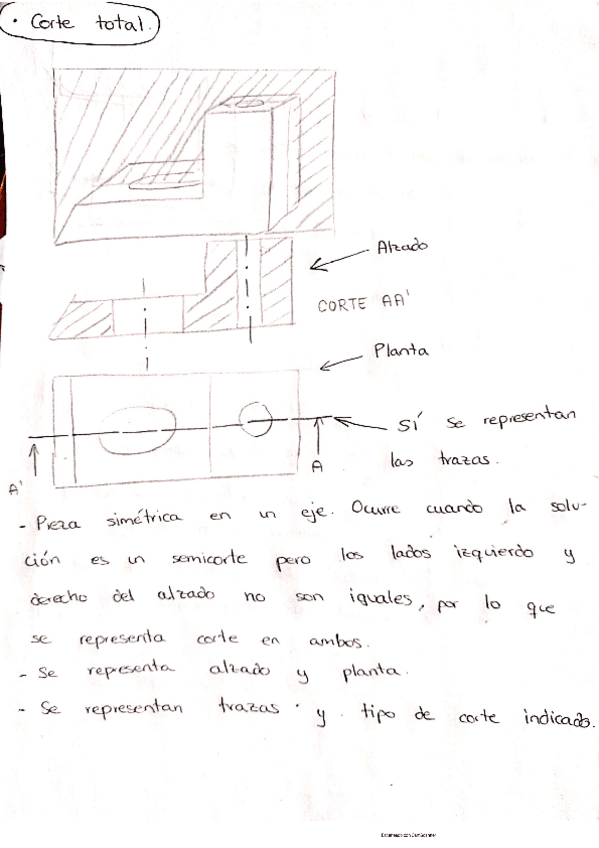 · Corte total.
Alzado
CORTE AA'
Planta
SÍ se representan
las trazas.
A'
A
- Pieza simétrica en un eje. Ocurre cuando la solu-
ción es un semicorte pero los lados izquierdo y
derecho del alzado no son iguales, por lo que
se representa corte en ambos.
- Se representa alzado y planta.
- Se representan trazas y tipo de corte indicado.
Escaneado con CamScanner